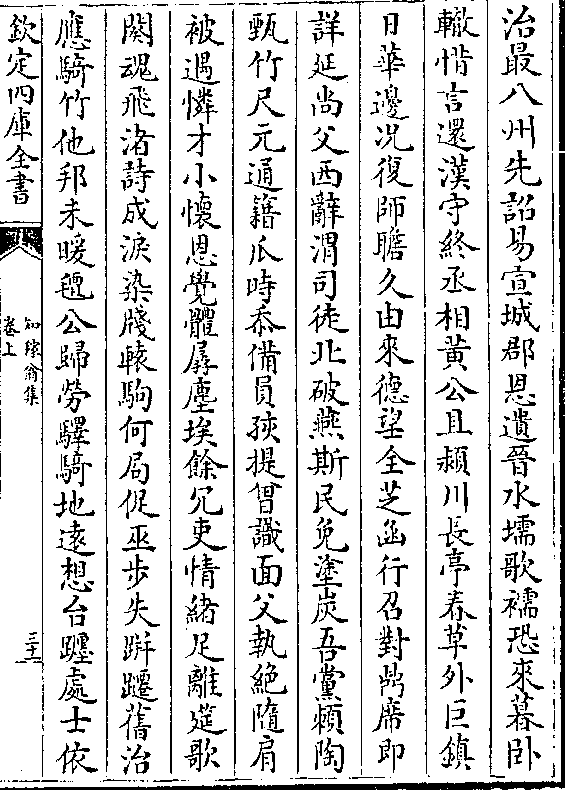 治最八州先詔易宣城郡恩遺晉水壖歌襦恐來暮卧
轍惜言還漢守終丞相黄公且潁川長亭春草外巨鎮
日華邊况復師瞻久由來德望全芝函行召對鼎席即
詳延尚父西辭渭司徒北破燕斯民免塗炭吾黨賴陶
甄竹尺元通籍瓜時忝備員孩提曽識面父執絶隨肩
被遇憐才小懷恩覺體孱塵埃餘冗吏情緒足離筵歌
闋魂飛渚詩成淚染牋轅駒何局促巫步失跰躚舊治
應騎竹他邦未暖氊公歸勞驛騎地遠想台躔處士依
欽定四庫全書
知稼翁集
卷上
三十一